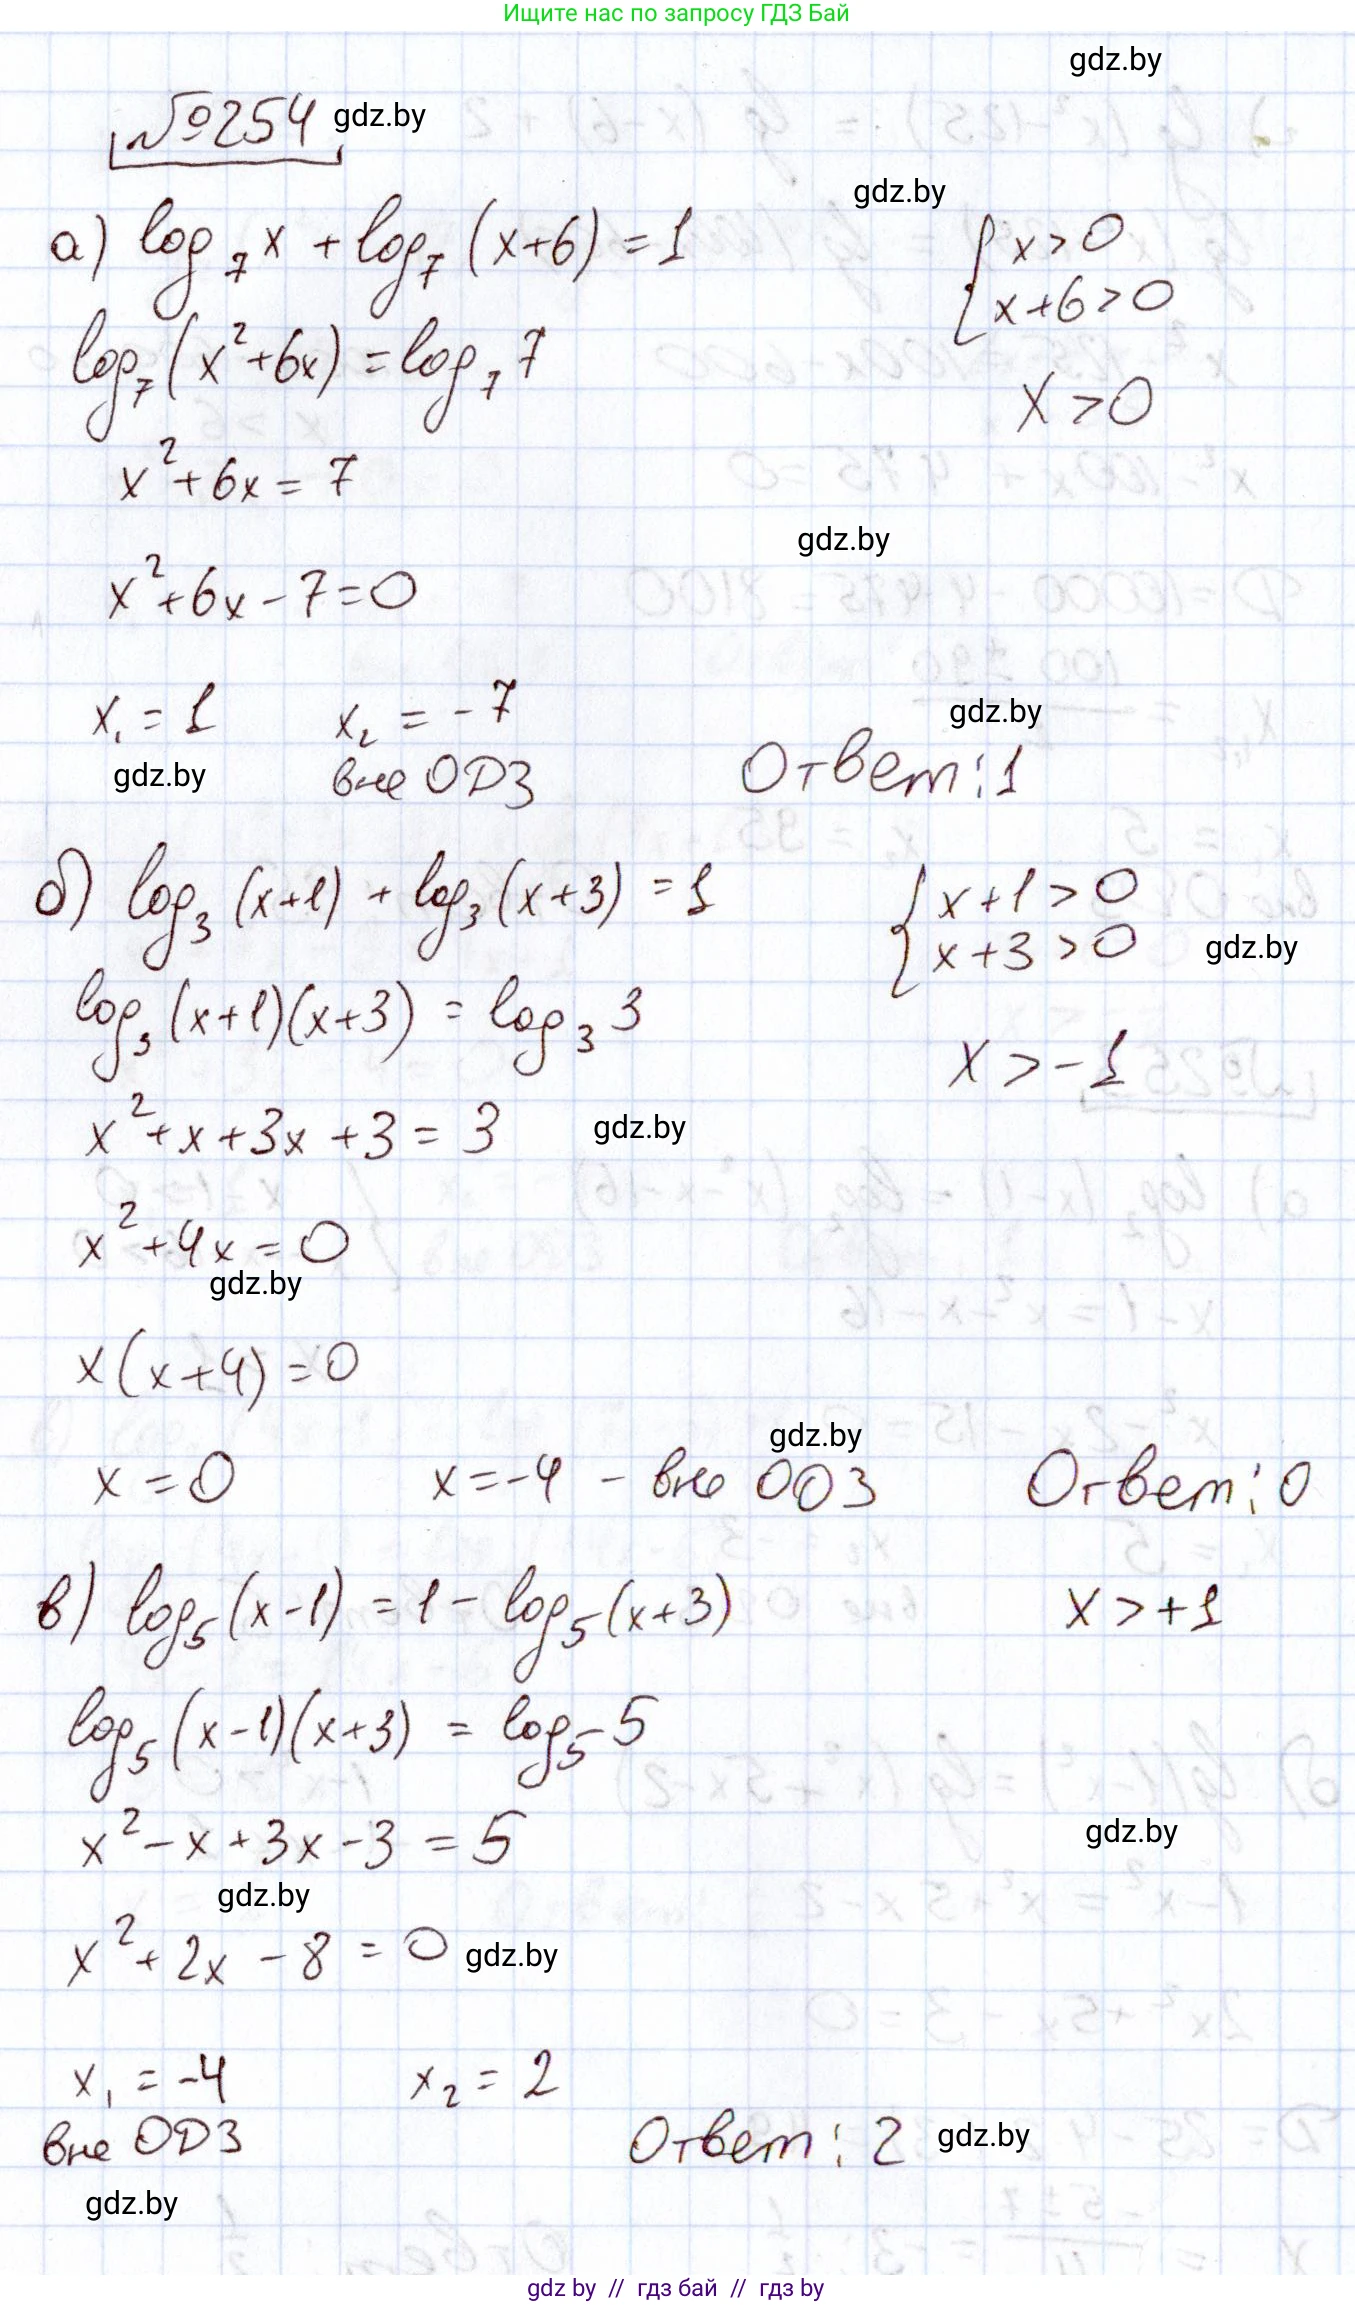 Ищите нас по запросу ГДЗ Бай
gdz.by
№254 gdz.by
gdz.by
а) log₇ x + log₇ (x+6) = 1 { x > 0
x+6 > 0
log₇ (x²+6x) = log₇ 7
x > 0
x²+6x = 7
gdz.by
x²+6x-7=0
x₁ = 1 x₂ = -7
gdz.by
gdz.by вне ОДЗ Ответ: 1
б) log₃ (x+1) + log₃ (x+3) = 1 { x+1 > 0
x+3 > 0 gdz.by
log₃ (x+1)(x+3) = log₃ 3
x > -1
x²+x+3x+3 = 3 gdz.by
x²+4x=0
gdz.by
x(x+4)=0
gdz.by
x=0 x=-4 - вне ООЗ Ответ: 0
в) log₅ (x-1) = 1 - log₅ (x+3) x > +1
log₅ (x-1)(x+3) = log₅ 5
x²-x+3x-3 = 5 gdz.by
gdz.by
x²+2x-8=0 gdz.by
x₁ = -4 x₂ = 2
вне ОДЗ Ответ: 2 gdz.by
gdz.by
gdz by // гдз бай // гдз by